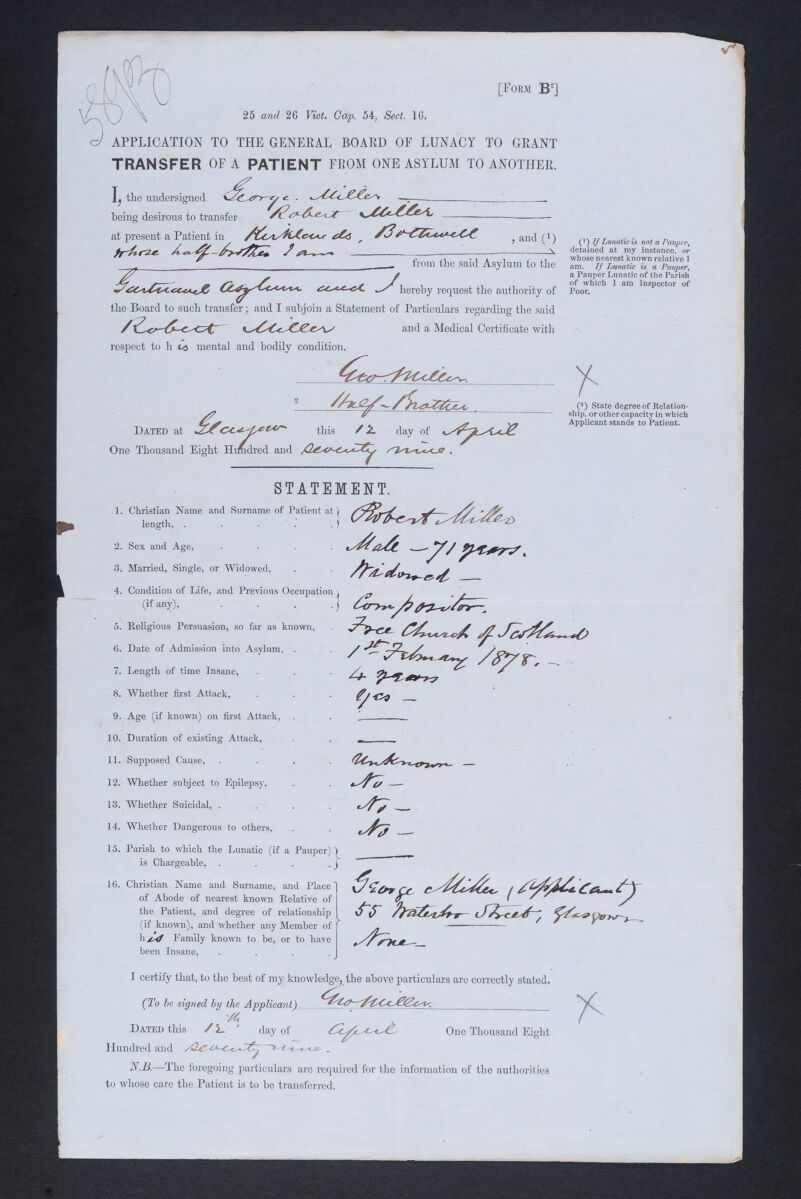 5893
[FORM B²]
25 and 26 Vict. Cap. 54, Sect. 16.
APPLICATION TO THE GENERAL BOARD OF LUNACY TO GRANT
TRANSFER OF A PATIENT FROM ONE ASYLUM TO ANOTHER.
I, the undersigned George Miller
being desirous to transfer Robert Miller
at present a Patient in Kirklands, Bothwell, and (¹)
whose half-brother I am
from the said Asylum to the
Gartnavel Asylum and I hereby request the authority of
the Board to such transfer; and I subjoin a Statement of Particulars regarding the said
Robert Miller and a Medical Certificate with
respect to his mental and bodily condition.
(¹) If Lunatic is not a Pauper,
detained at my instance, or
whose nearest known relative I
am. If Lunatic is a Pauper,
a Pauper Lunatic of the Parish
of which I am Inspector of
Poor.
Geo. Miller. X
² Half-Brother.
(²) State degree of Relation-
ship, or other capacity in which
Applicant stands to Patient.
DATED at Glasgow this 12 day of April
One Thousand Eight Hundred and seventy nine.
STATEMENT.
1. Christian Name and Surname of Patient at
length, . . . . . Robert Miller
2. Sex and Age, . . . . Male – 71 years.
3. Married, Single, or Widowed, . . Widowed –
4. Condition of Life, and Previous Occupation
(if any), . . . . Compositor.
5. Religious Persuasion, so far as known, Free Church of Scotland
6. Date of Admission into Asylum, . . 1st February 1878. –
7. Length of time Insane, . . . 4 years
8. Whether first Attack, . . . Yes –
9. Age (if known) on first Attack, . . —
10. Duration of existing Attack, . . —
11. Supposed Cause, . . . . Unknown –
12. Whether subject to Epilepsy, . . No –
13. Whether Suicidal, . . . . No –
14. Whether Dangerous to others, . . No –
15. Parish to which the Lunatic (if a Pauper)
is Chargeable, . . . . —
16. Christian Name and Surname, and Place
of Abode of nearest known Relative of
the Patient, and degree of relationship
(if known), and whether any Member of
his Family known to be, or to have
been Insane, . . . .
George Miller (Applicant)
55 Waterloo Street, Glasgow
None –
I certify that, to the best of my knowledge, the above particulars are correctly stated.
(To be signed by the Applicant) Geo. Miller. X
DATED this 12th day of April One Thousand Eight
Hundred and seventy nine.
N.B.—The foregoing particulars are required for the information of the authorities
to whose care the Patient is to be transferred.